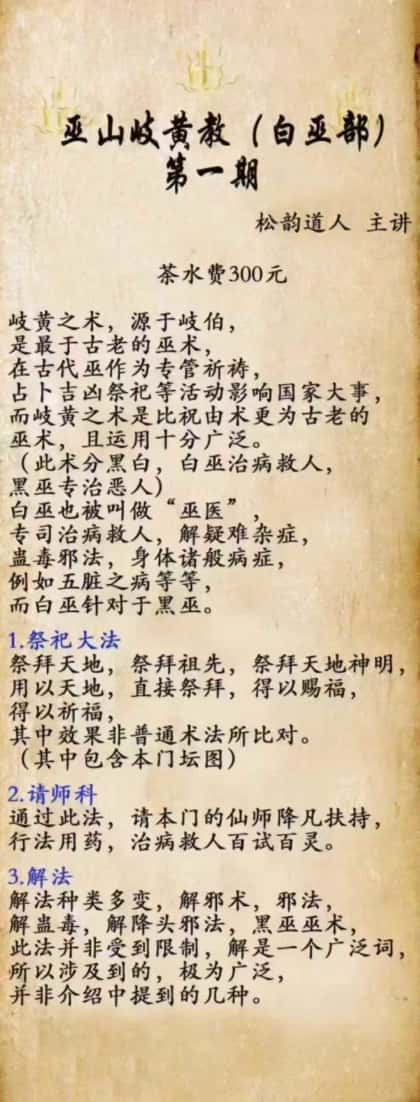 巫山岐黄教（白巫部）
第一期
松韵道人 主讲
茶水费300元
岐黄之术，源于岐伯，
是最于古老的巫术，
在古代巫作为专管祈祷，
占卜吉凶祭祀等活动影响国家大事，
而岐黄之术是比祝由术更为古老的
巫术，且运用十分广泛。
（此术分黑白，白巫治病救人，
黑巫专治恶人）
白巫也被叫做“巫医”，
专司治病救人，解疑难杂症，
蛊毒邪法，身体诸般病症，
例如五脏之病等等，
而白巫针对于黑巫。
1.祭祀大法
祭拜天地，祭拜祖先，祭拜天地神明，
用以天地，直接祭拜，得以赐福，
得以祈福，
其中效果非普通术法所比对。
（其中包含本门坛图）
2.请师科
通过此法，请本门的仙师降凡扶持，
行法用药，治病救人百试百灵。
3.解法
解法种类多变，解邪术，邪法，
解蛊毒，解降头邪法，黑巫巫术，
此法并非受到限制，解是一个广泛词，
所以涉及到的，极为广泛，
并非介绍中提到的几种。